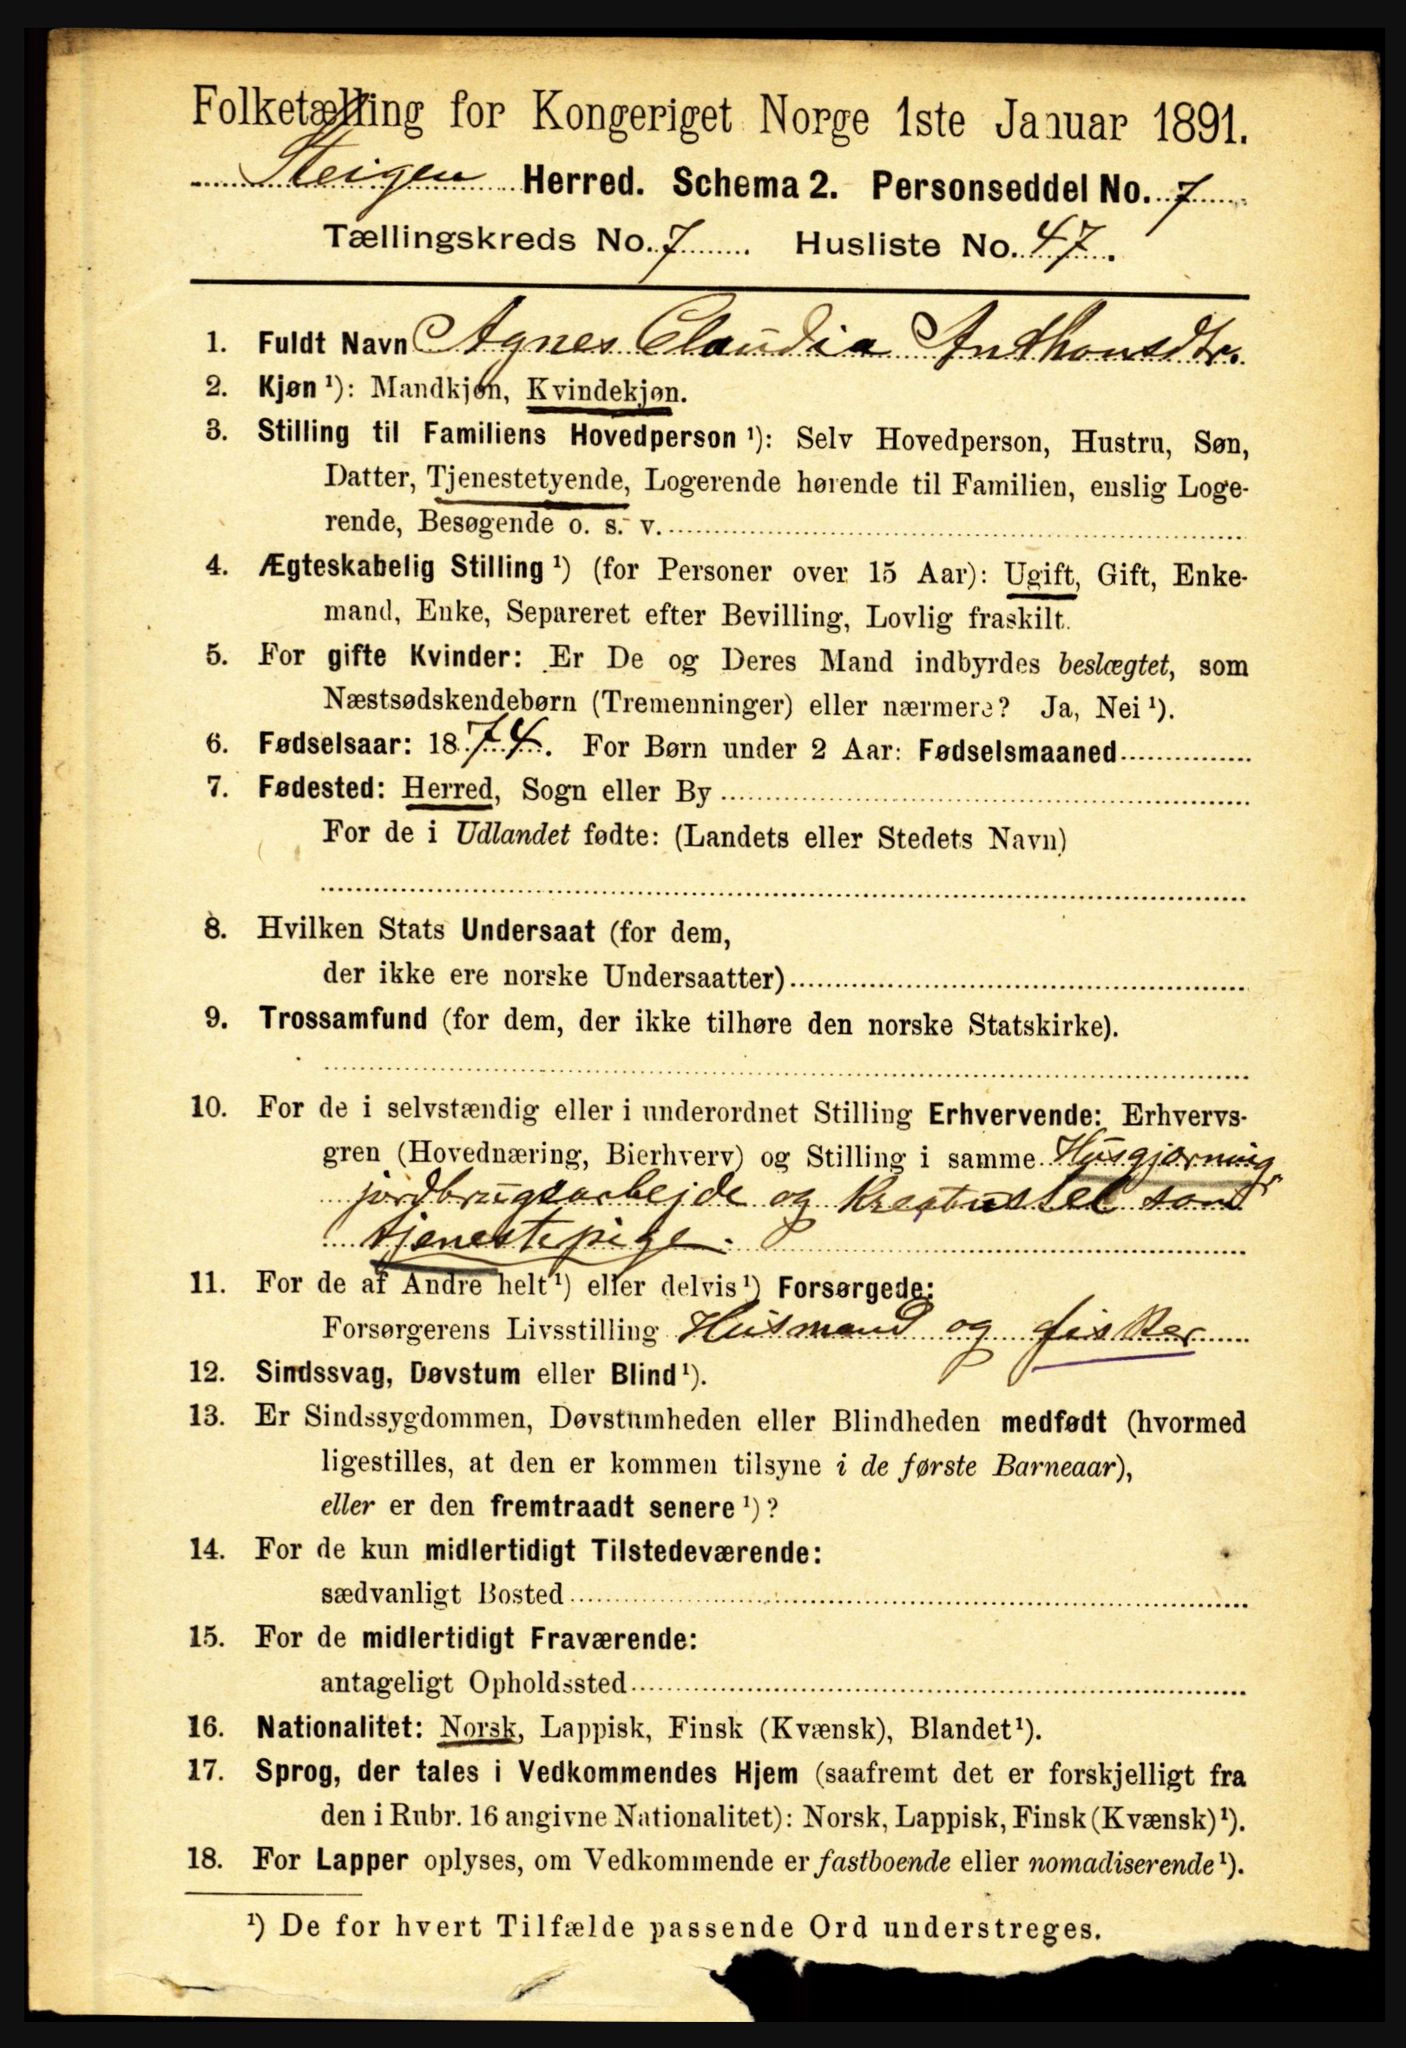 Folketælling for Kongeriget Norge 1ste Januar 1891.
Steigen Herred. Schema 2. Personseddel No. 7
Tællingskreds No. 7 Husliste No. 47.
1. Fuldt Navn Agnes Claudia Anthonsdtr.
2. Kjøn ¹): Mandkjøn, Kvindekjøn.
3. Stilling til Familiens Hovedperson ¹): Selv Hovedperson, Hustru, Søn,
Datter, Tjenestetyende, Logerende hørende til Familien, enslig Loge-
rende, Besøgende o. s. v.
4. Ægteskabelig Stilling ¹) (for Personer over 15 Aar): Ugift, Gift, Enke-
mand, Enke, Separeret efter Bevilling, Lovlig fraskilt.
5. For gifte Kvinder: Er De og Deres Mand indbyrdes beslægtet, som
Næstsødskendebørn (Tremenninger) eller nærmere? Ja, Nei ¹).
6. Fødselsaar: 1874. For Børn under 2 Aar: Fødselsmaaned
7. Fødested: Herred, Sogn eller By
For de i Udlandet fødte: (Landets eller Stedets Navn)
8. Hvilken Stats Undersaat (for dem,
der ikke ere norske Undersaatter)
9. Trossamfund (for dem, der ikke tilhøre den norske Statskirke).
10. For de i selvstændig eller i underordnet Stilling Erhvervende: Erhvervs-
gren (Hovednæring, Bierhverv) og Stilling i samme Husgjørning,
jordbrugsarbejde og Kreaturstel som
tjenestepige.
11. For de af Andre helt ¹) eller delvis ¹) Forsørgede:
Forsørgerens Livsstilling Husmand og fisker
12. Sindssvag, Døvstum eller Blind ¹).
13. Er Sindssygdommen, Døvstumheden eller Blindheden medfødt (hvormed
ligestilles, at den er kommen tilsyne i de første Barneaar),
eller er den fremtraadt senere ¹)?
14. For de kun midlertidigt Tilstedeværende:
sædvanligt Bosted
15. For de midlertidigt Fraværende:
antageligt Opholdssted
16. Nationalitet: Norsk, Lappisk, Finsk (Kvænsk), Blandet ¹).
17. Sprog, der tales i Vedkommendes Hjem (saafremt det er forskjelligt fra
den i Rubr. 16 angivne Nationalitet): Norsk, Lappisk, Finsk (Kvænsk) ¹).
18. For Lapper oplyses, om Vedkommende er fastboende eller nomadiserende ¹).
¹) De for hvert Tilfælde passende Ord understreges.